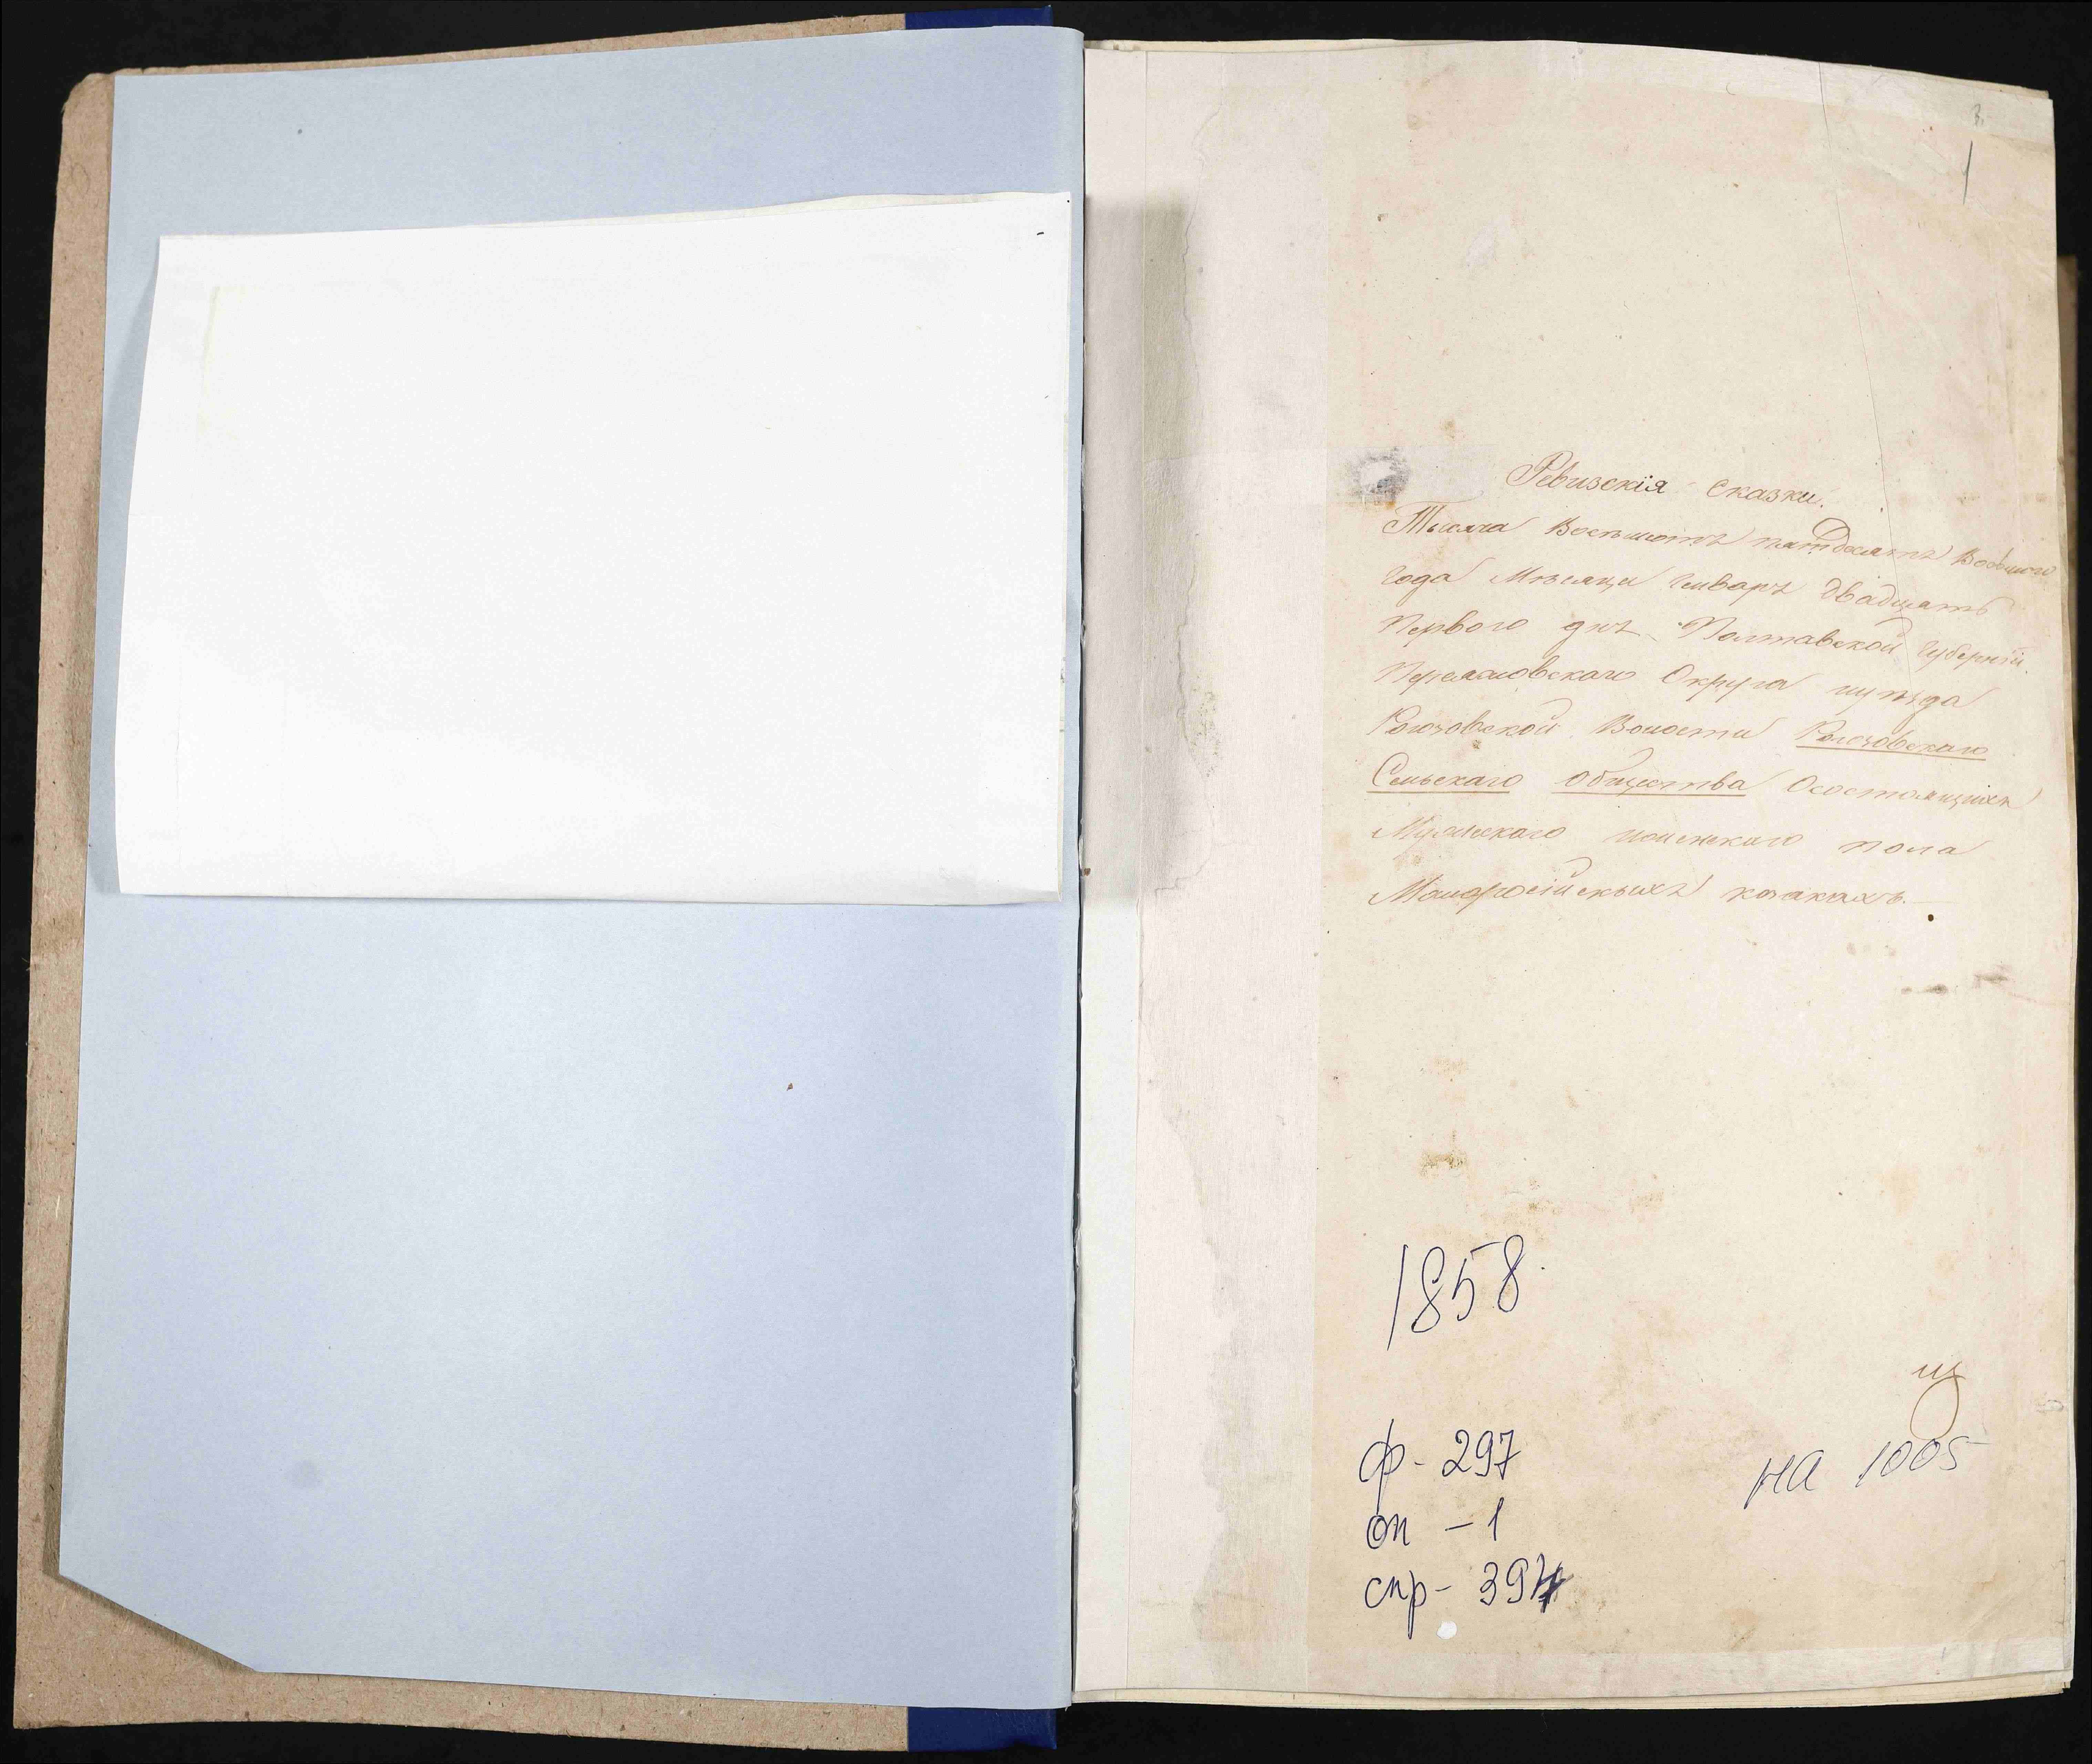 1
Ревизскія сказки.
Тысяча Восемсотъ пятдесятъ Восьмого
года Мѣсяца Генваръ двадцать
Первого днъ Полтавской Губерніи
Переясловскаго Округа иуѣзда
Рогозовской Волости Рогозовскаго
Сельскаго общества Осостоящихъ
Мужескаго иженскаго пола
Малоросійскыхъ козакахъ.
1858
ф - 297
на 1005
оп - 1
спр - 394